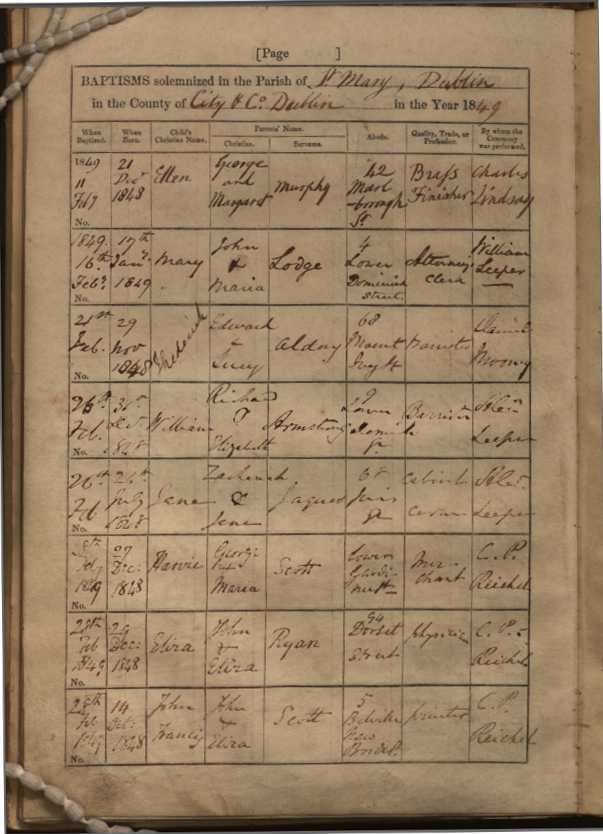 [Page ]
BAPTISMS solemnized in the Parish of St Mary, Dublin
in the County of City & Co. Dublin in the Year 1849
When Baptized. When Born. Child's Christian Name. Parents' Name. Christian. Surname. Abode. Quality, Trade, or Profession. By whom the Ceremony was performed.
1849 11 Feby No. 21 Decr 1848 Ellen George and Margaret Murphy 42 Marl-borough St Brass Finisher Charles Lindsay
1849. 16th Feby. No. 17th Jany. 1849 Mary John & Maria Lodge 4 Lower Dominick Street. Attorney's Clerk William Leeper
21st Feb. No. 29 Nov 1848 Frederick Edward Lucy 68 Mount Barrister Daniel Mooney
26th Feb. No. 31st William Richard & Elizabeth Armstrong Barrister Leeper
26th Feb No. July Jane & Jane Jaques 68 Cabinet Leeper
Feby 1849 No. 27 Dec: 1848 George & Maria Scott Lower Mer-chant C. P. Reichel
28th Feb 1849 No. 29 Dec: 1848 Eliza John & Eliza Ryan 94 Dorset Street physician C. P. Reichel
28th Feb 1849 No. 14 1848 John Francis John & Eliza Scott 5 New printer C. P. Reichel